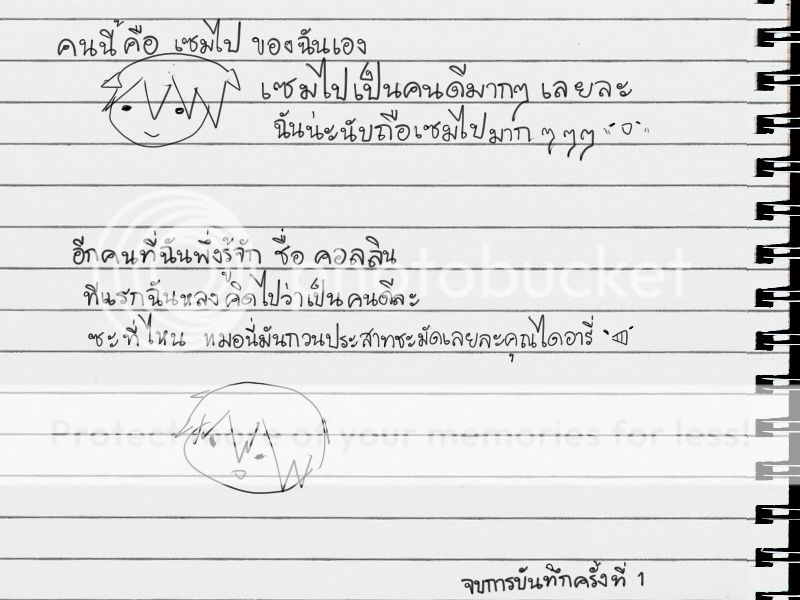 คนนี้ คือ เซมไป ของฉันเอง
เซมไปเป็นคนดีมากๆ เลยละ
ฉันน่ะนับถือเซมไปมาก ๆๆๆ
อีกคนที่ฉันพึ่งรู้จัก ชื่อ คอลลิน
photobucket
ทีแรกฉันหลงคิดไปว่าเป็นคนดีละ
ซะที่ไหน หมอนี่มันกวนประสาทชะมัดเลยละคุณไดอารี่
Protect more of your memories for less!
จบการบันทึกครั้งที่ 1